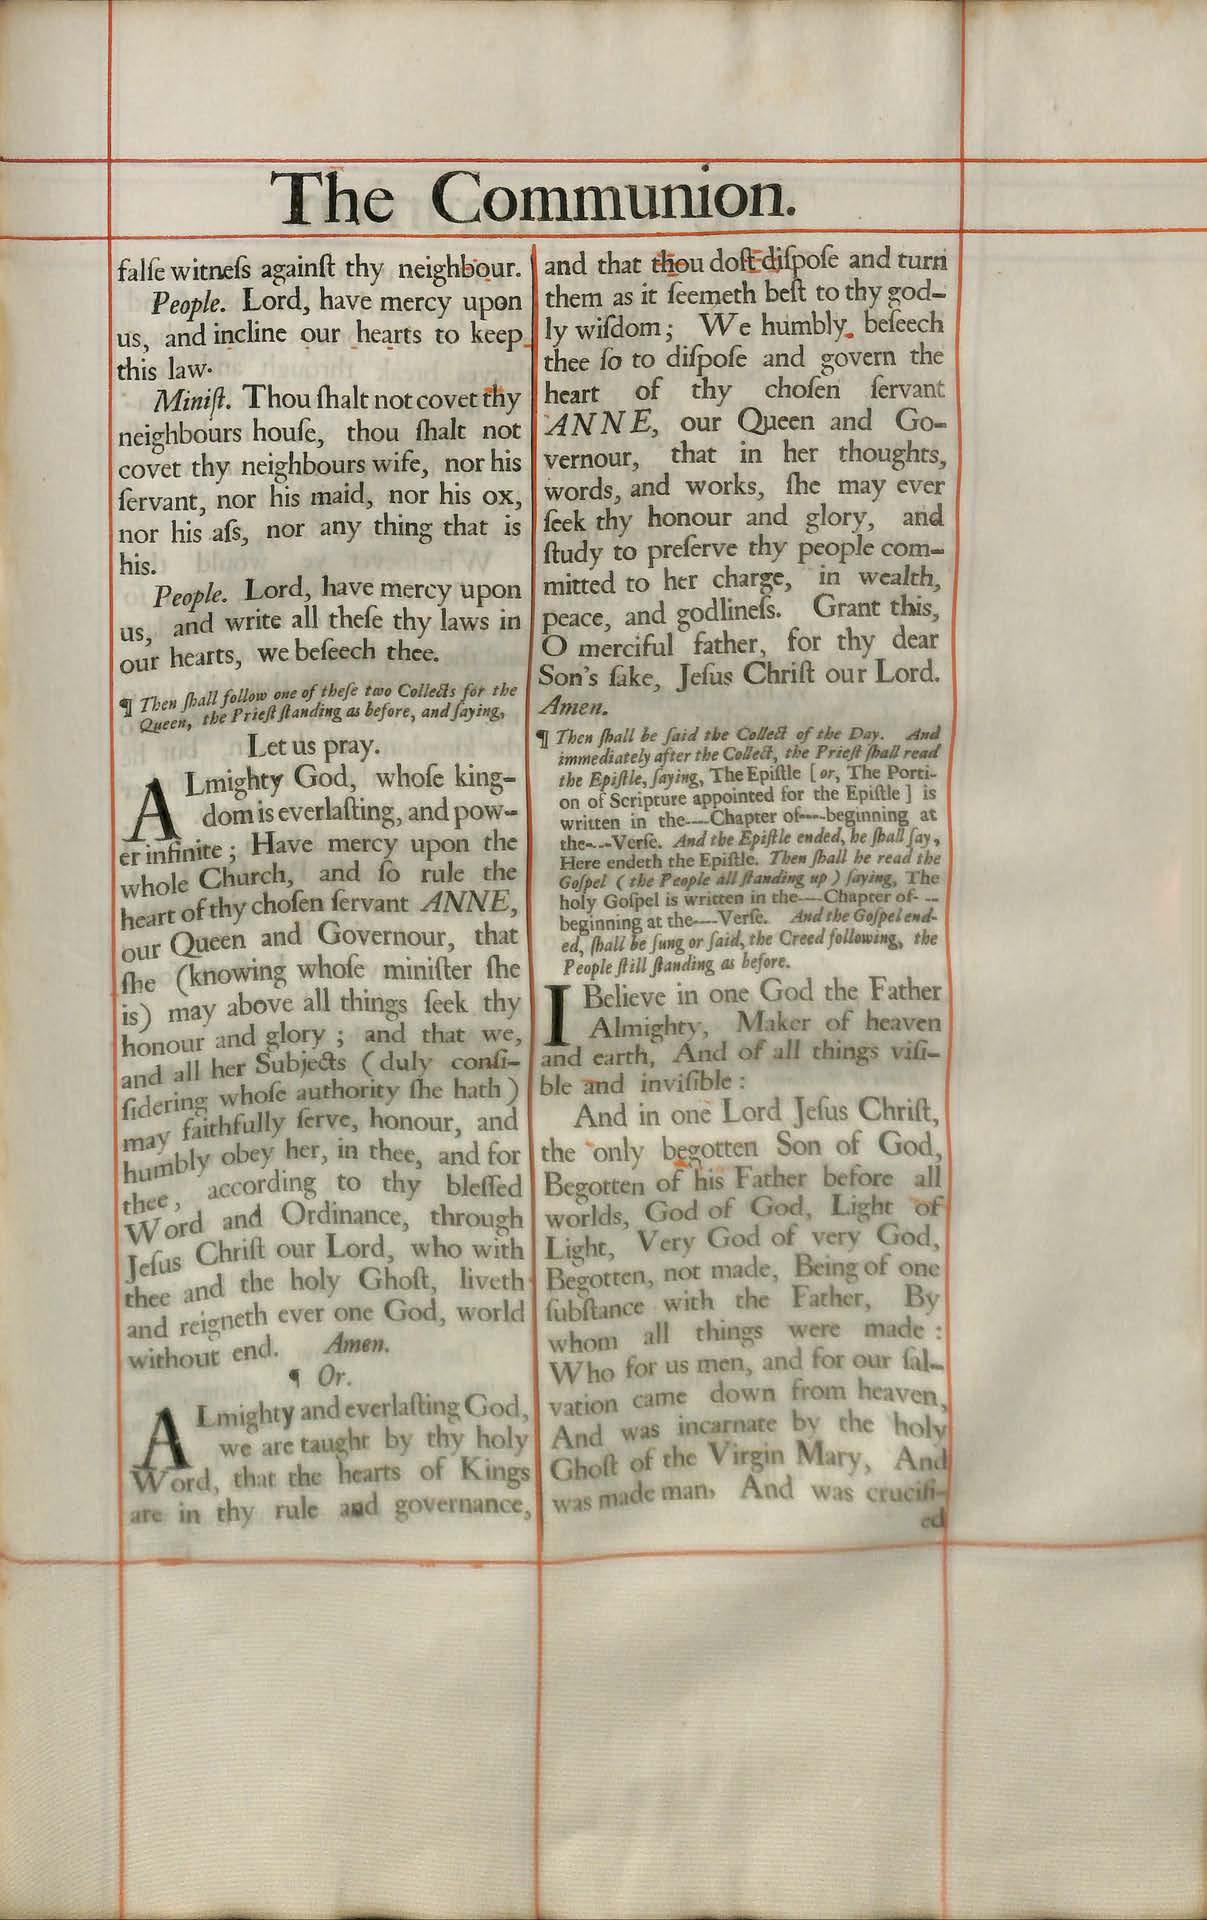 The Communion.
falſe witneſs againſt thy neighbour.
People. Lord, have mercy upon
us, and incline our hearts to keep
this law.
Miniſt. Thou ſhalt not covet thy
neighbours houſe, thou ſhalt not
covet thy neighbours wife, nor his
ſervant, nor his maid, nor his ox,
nor his aſs, nor any thing that is
his.
People. Lord, have mercy upon
us, and write all theſe thy laws in
our hearts, we beſeech thee.
¶ Then ſhall follow one of theſe two Collects for the
Queen, the Prieſt ſtanding as before, and ſaying,
Let us pray.
ALmighty God, whoſe king-
dom is everlaſting, and pow-
er infinite; Have mercy upon the
whole Church, and ſo rule the
heart of thy choſen ſervant ANNE,
our Queen and Governour, that
ſhe (knowing whoſe miniſter ſhe
is) may above all things ſeek thy
honour and glory; and that we,
and all her Subjects (duly conſi-
ſidering whoſe authority ſhe hath)
may faithfully ſerve, honour, and
humbly obey her, in thee, and for
thee, according to thy bleſſed
Word and Ordinance, through
Jeſus Chriſt our Lord, who with
thee and the holy Ghoſt, liveth
and reigneth ever one God, world
without end. Amen.
¶ Or.
ALmighty and everlaſting God,
we are taught by thy holy
Word, that the hearts of Kings
are in thy rule and governance,
and that thou doſt diſpoſe and turn
them as it ſeemeth beſt to thy god-
ly wiſdom; We humbly beſeech
thee ſo to diſpoſe and govern the
heart of thy choſen ſervant
ANNE, our Queen and Go-
vernour, that in her thoughts,
words, and works, ſhe may ever
ſeek thy honour and glory, and
ſtudy to preſerve thy people com-
mitted to her charge, in wealth,
peace, and godlineſs. Grant this,
O merciful father, for thy dear
Son's ſake, Jeſus Chriſt our Lord.
Amen.
¶ Then ſhall be ſaid the Collect of the Day. And
immediately after the Collect, the Prieſt ſhall read
the Epiſtle, ſaying, The Epiſtle [or, The Porti-
on of Scripture appointed for the Epiſtle] is
written in the----Chapter of----beginning at
the----Verſe. And the Epiſtle ended, he ſhall ſay,
Here endeth the Epiſtle. Then ſhall he read the
Goſpel (the People all ſtanding up) ſaying, The
holy Goſpel is written in the----Chapter of----
beginning at the----Verſe. And the Goſpel end-
ed, ſhall be ſung or ſaid, the Creed following, the
People ſtill ſtanding as before.
I Believe in one God the Father
Almighty, Maker of heaven
and earth, And of all things viſi-
ble and inviſible:
And in one Lord Jeſus Chriſt,
the only begotten Son of God,
Begotten of his Father before all
worlds, God of God, Light of
Light, Very God of very God,
Begotten, not made, Being of one
ſubſtance with the Father, By
whom all things were made:
Who for us men, and for our ſal-
vation came down from heaven,
And was incarnate by the holy
Ghoſt of the Virgin Mary, And
was made man, And was crucifi-
ed